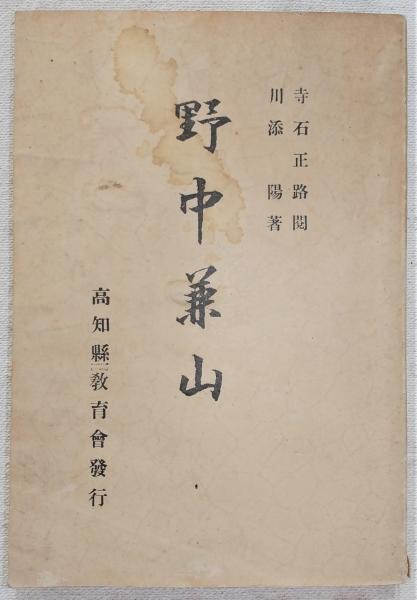 寺石正路閱
川添陽著
野中兼山
高知縣教育會發行